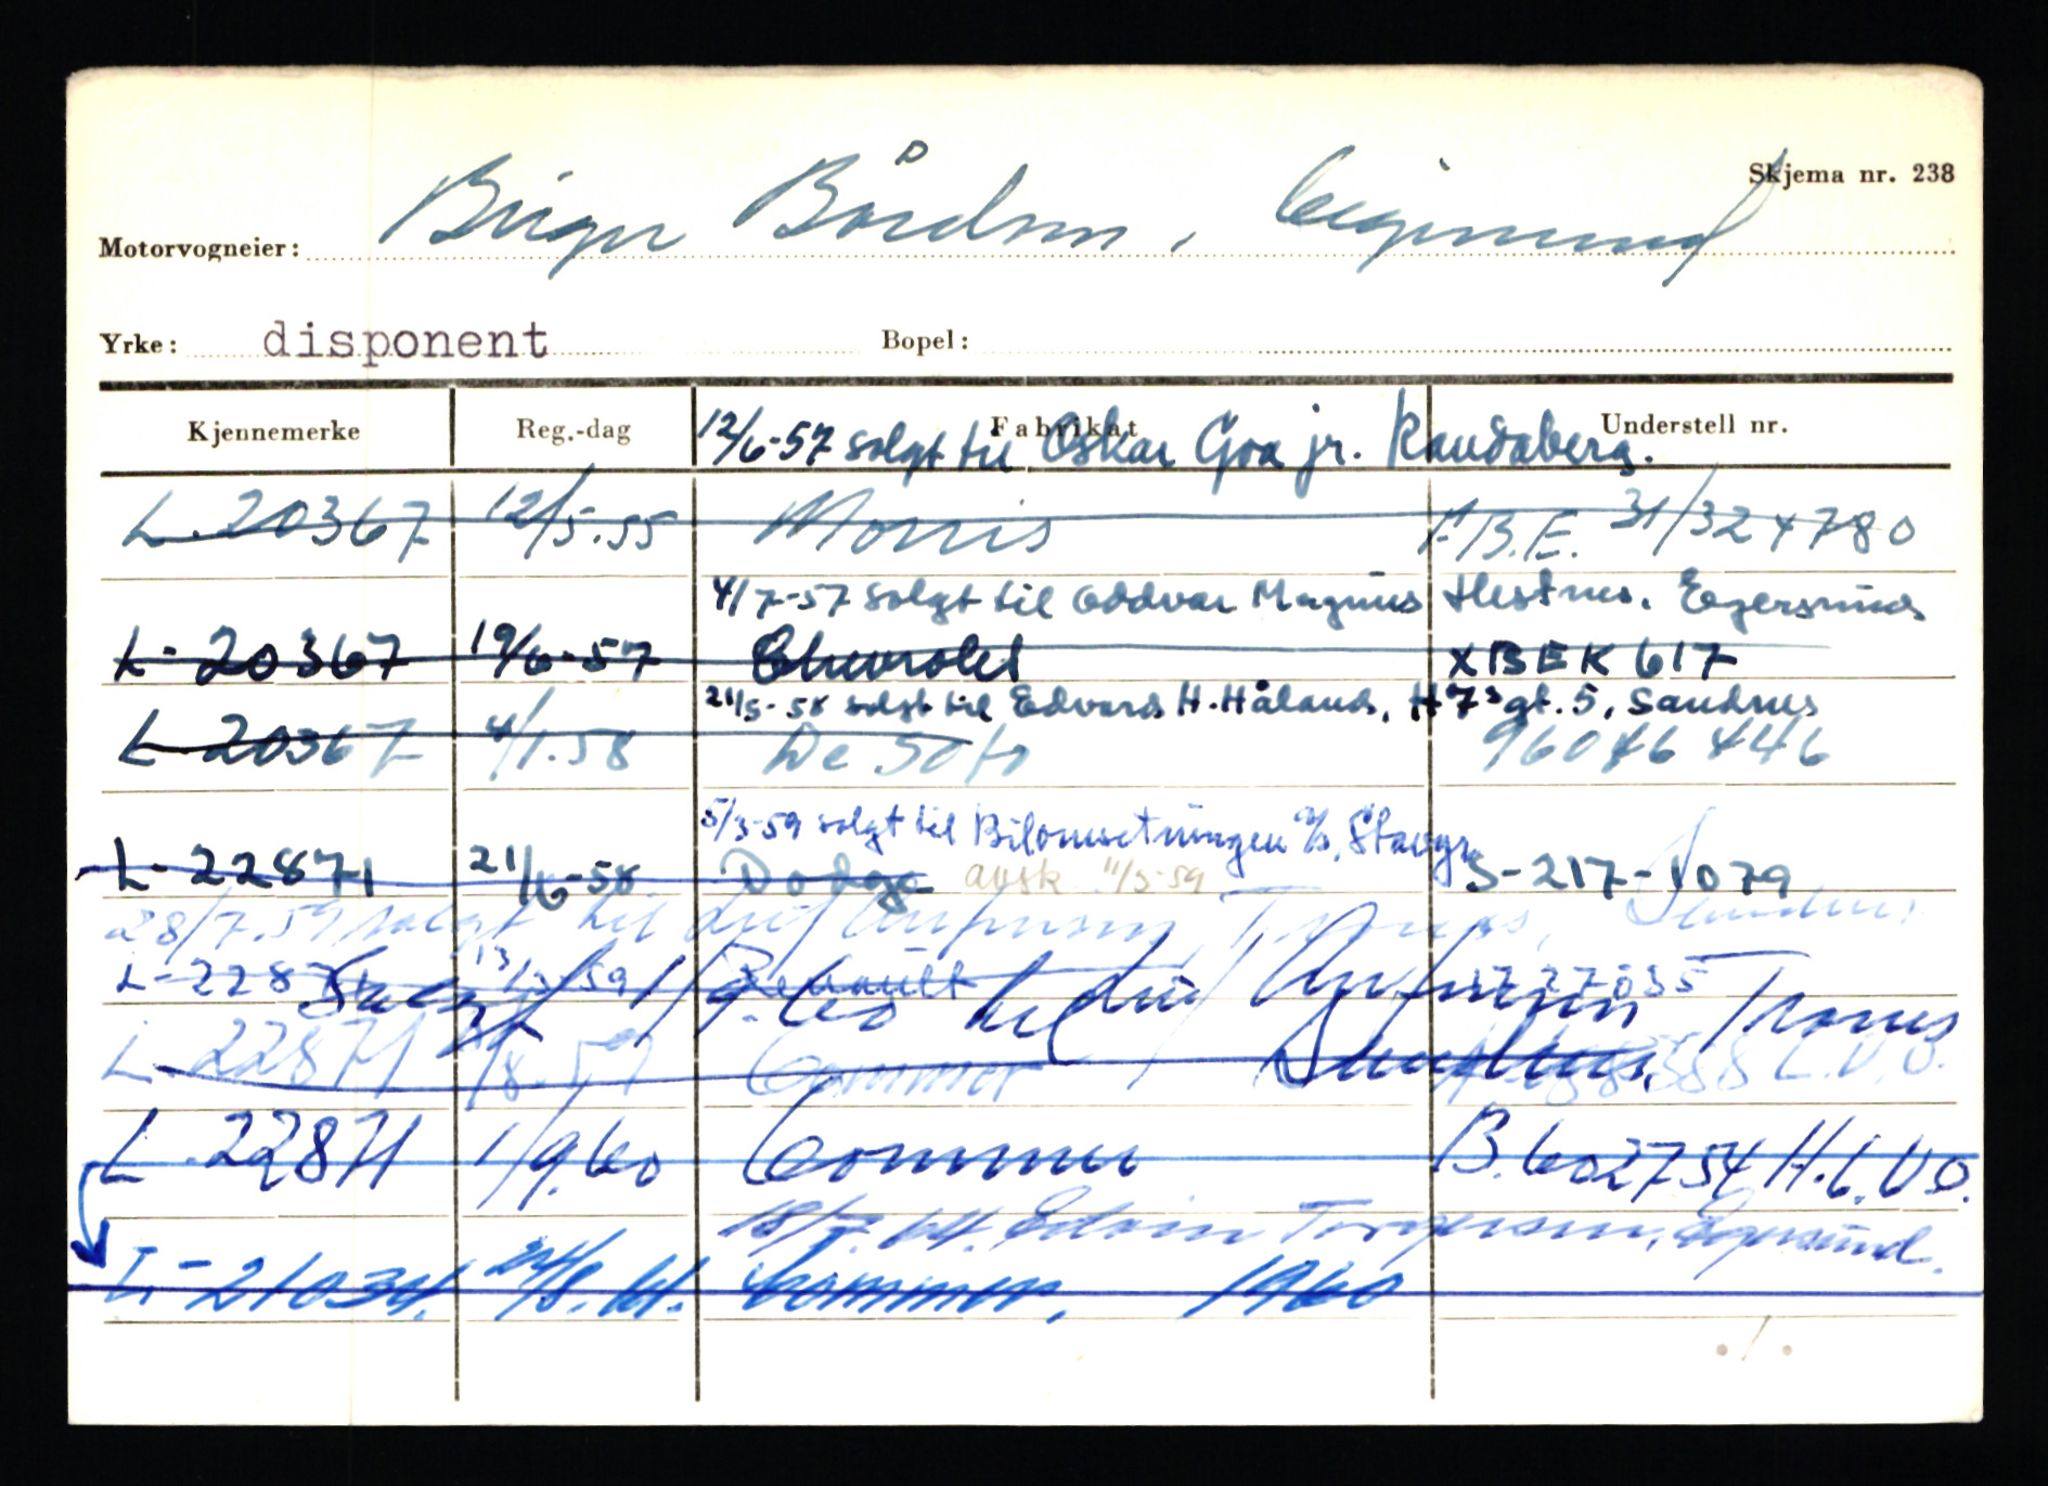 Skjema nr. 238
Motorvogneier: Birger Bårdsen, Eigersund
Yrke: disponent Bopel:
Kjennemerke Reg.-dag Fabrikat Understell nr.
12/6-57 solgt til Oskar Goa jr. Randaberg.
L. 20367 12/5.55 Morris F.B.E. 31/324780
4/7-57 solgt til Oddvar Magnus Hestnes. Egersund
L- 20367 19/6-57 Chevrolet XBEK617
21/5-58 solgt til Edvard H. Håland, H 7's gt. 5, Sandnes
L. 20367 4/1.58 De Soto 96046446
5/3-59 solgt til Bilomsetningen a/s, Stavgr.
L- 22871 21/6-58 Dodge avsk 11/3-59 S-217-1079
28/7.59 solgt til Leif Aufinsen, Trones, Sandnes
L-22871 13/3-59 Renault
Solgt 1/9.60 til Leif Aufinsen Trones
Sandnes
L. 22871 /8.59 Commer L.V.O.
L. 22871 1/9.60 Commer B.602754 H.L.V.O.
Edvin Torgersen, Egersund.
L-21034. 24/8.61. Commer. 1960
./.